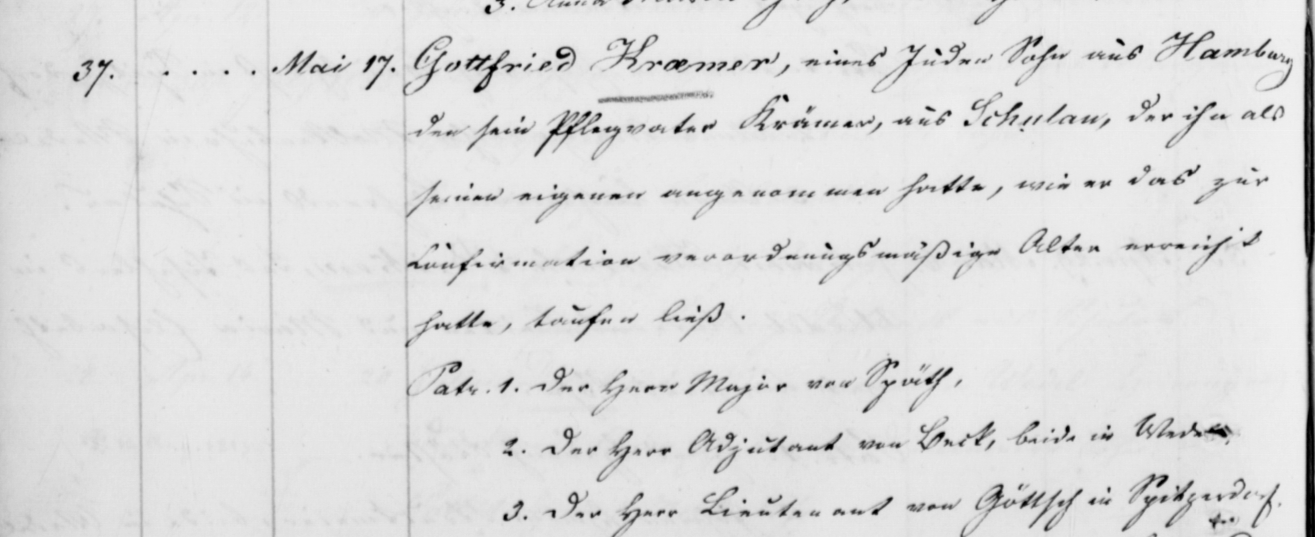 37. . . . . . Mai 17. Gottfried Kræmer, eines Juden Sohn aus Hamburg
den sein Pflegvater Krämer, aus Schulau, der ihn als
seinen eigenen angenommen hatte, wie er das zur
Confirmation verordnungsmäßige Alter erreicht
hatte, taufen ließ.
Patr. 1. Der Herr Major von Späth,
2. Der Herr Adjutant von Beck, beide in Wedel,
3. Der Herr Lieutenant von Göttsch in Spitzerdorf.